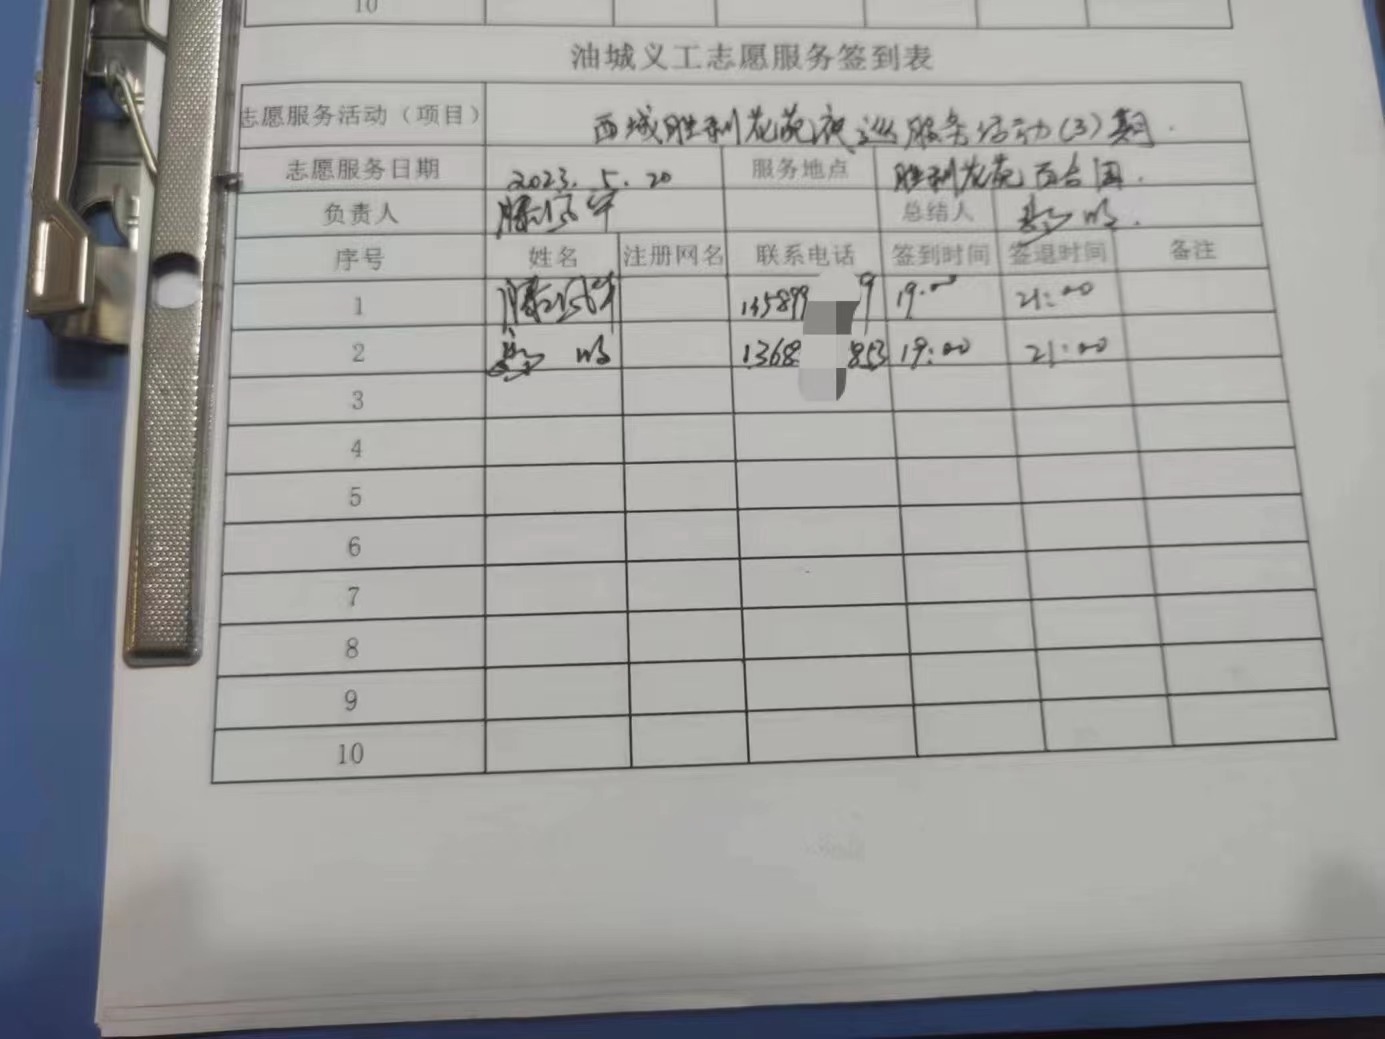 10
油城义工志愿服务签到表
志愿服务活动（项目） 西城胜利花苑夜巡服务活动(3)期.
志愿服务日期 2023.5.20 服务地点 胜利花苑百合园.
负责人 滕 总结人 明.
序号 姓名 注册网名 联系电话 签到时间 签退时间 备注
1 滕 135899 9 19:00 21:00
2 明 1368 853 19:00 21:00
3
4
5
6
7
8
9
10